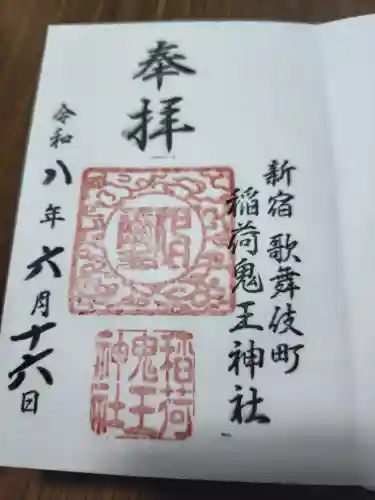 奉拝
新宿 歌舞伎町
稲荷鬼王神社
稲荷
鬼王
神社
令和八年六月十六日